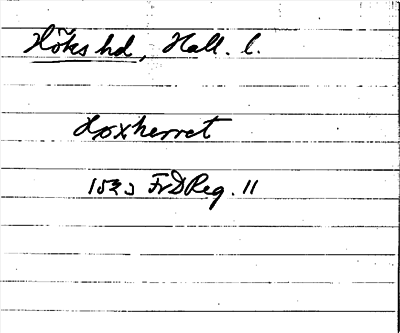 Höks hd, Hall. l.
Høxherret
1523 FrDReg. 11